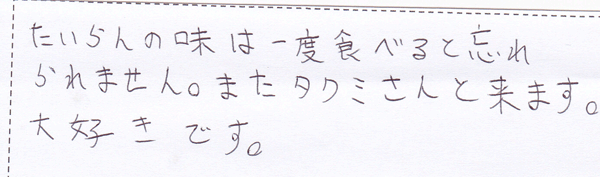 たいらんの味は一度食べると忘れ
られません。またタクミさんと来ます。
大好きです。